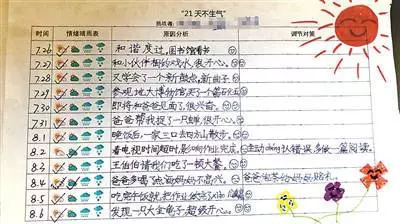 "21天不生气"
挑战者:
时间 情绪晴雨表 原因分析 调对策
7.26 和谐度过,图书馆看书
7.27 和小伙伴相约戏水,很开心。
7.28 又学会了一个新酷点,新曲子
7.29 参观地大博物馆买了个萤石
7.30 即将和爸爸见面了,很兴奋。
7.31 爸爸帮我捉了一只蝉,很开心。
8.1 晚饭后,一家三口去南山散步。
8.2 看电视时间超时,影响作业完成。 主动向ching认错误,多做一篇阅读。
8.3 王伯伯请我们吃了一顿大餐。
8.4 爸爸多喝了点酒,妈妈不高兴。 爸爸泡茶给妈妈赔礼。
8.5 吃完午饭就把作业做完了
8.6 发现一只大金龟子,超级开心。